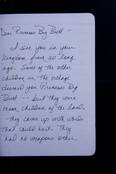 Dear Princess Big Butt -
I see you in your
kingdom from so long
ago. Some of the other
children in the village
called you Princess Big
Butt -- but they were
mean, children of the land.
they came up with words
that could hurt. They
had no weapons other